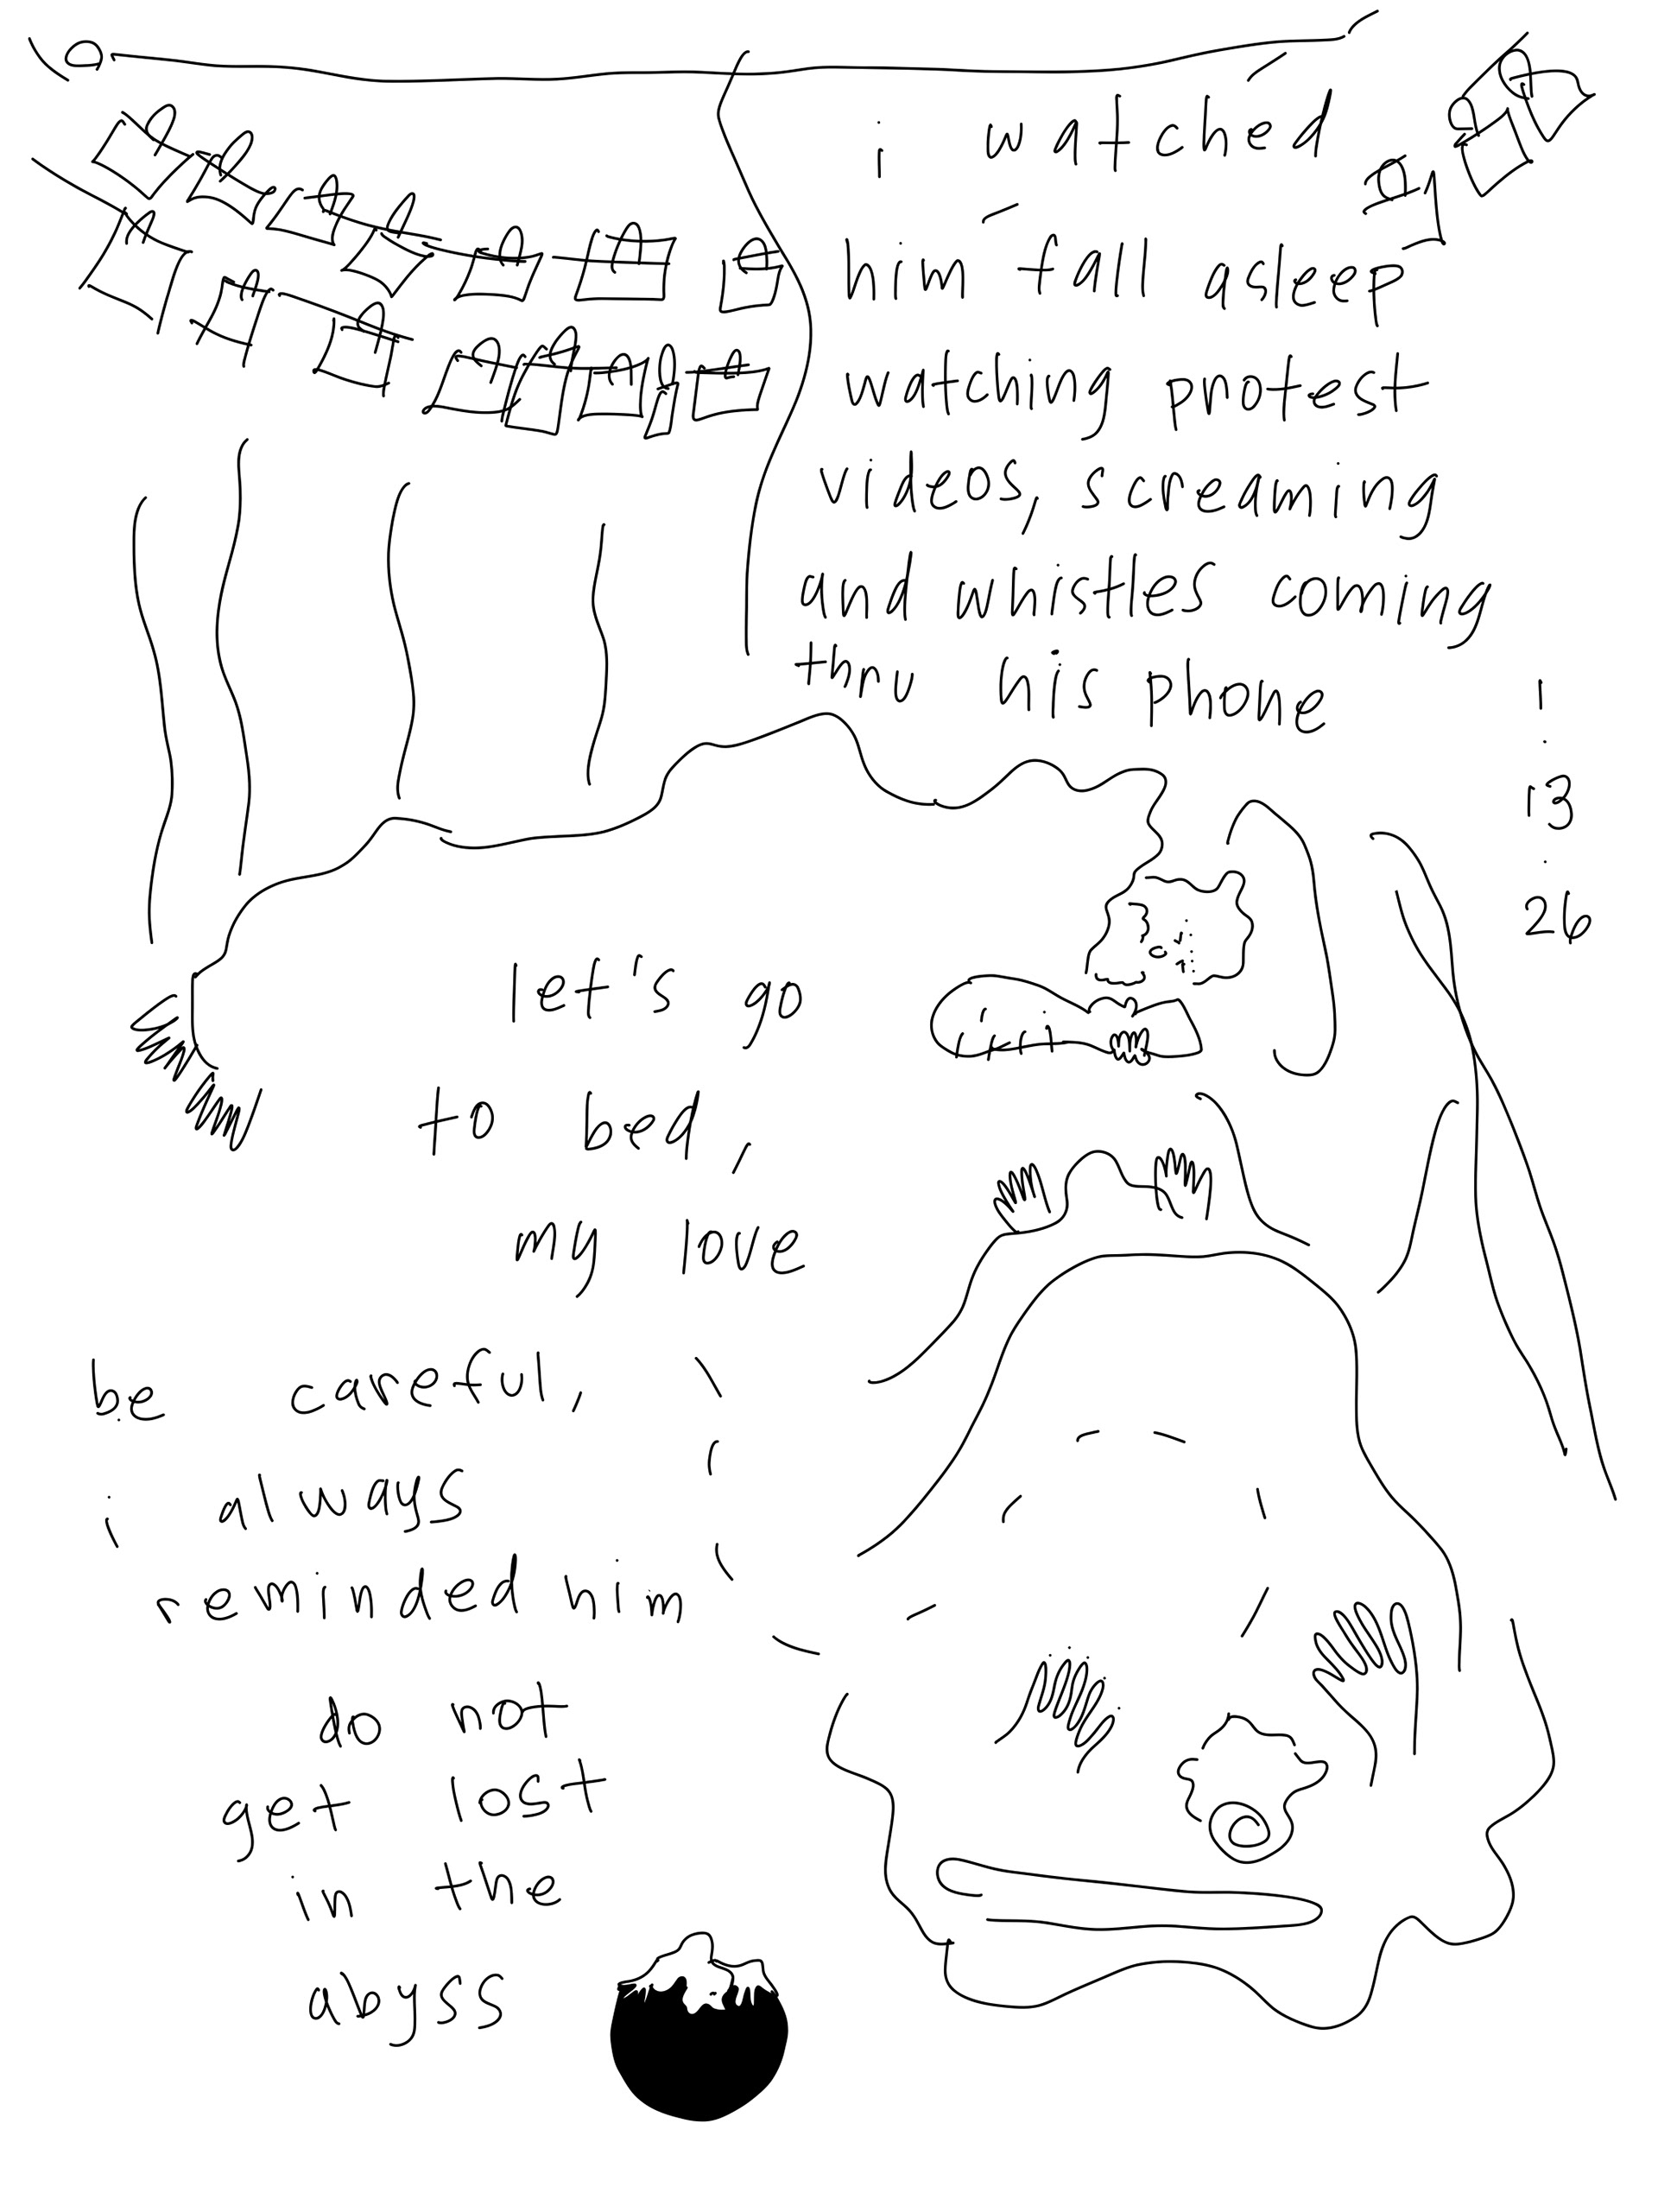 i watched
him fall asleep
watching protest
videos, screaming
and whistles coming
thru his phone
1
.
13
.
26
let's go
to bed,
my love
be careful,
i always
reminded him
do not
get lost
in the
abyss